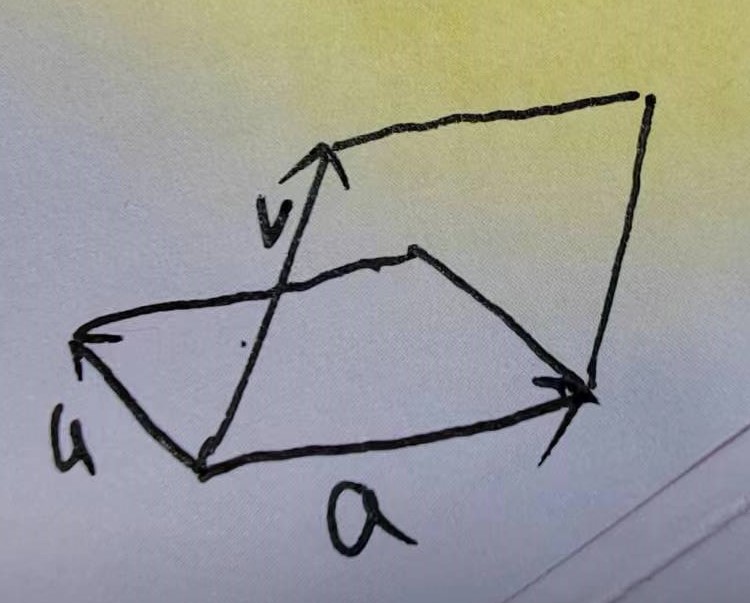 v
u
a